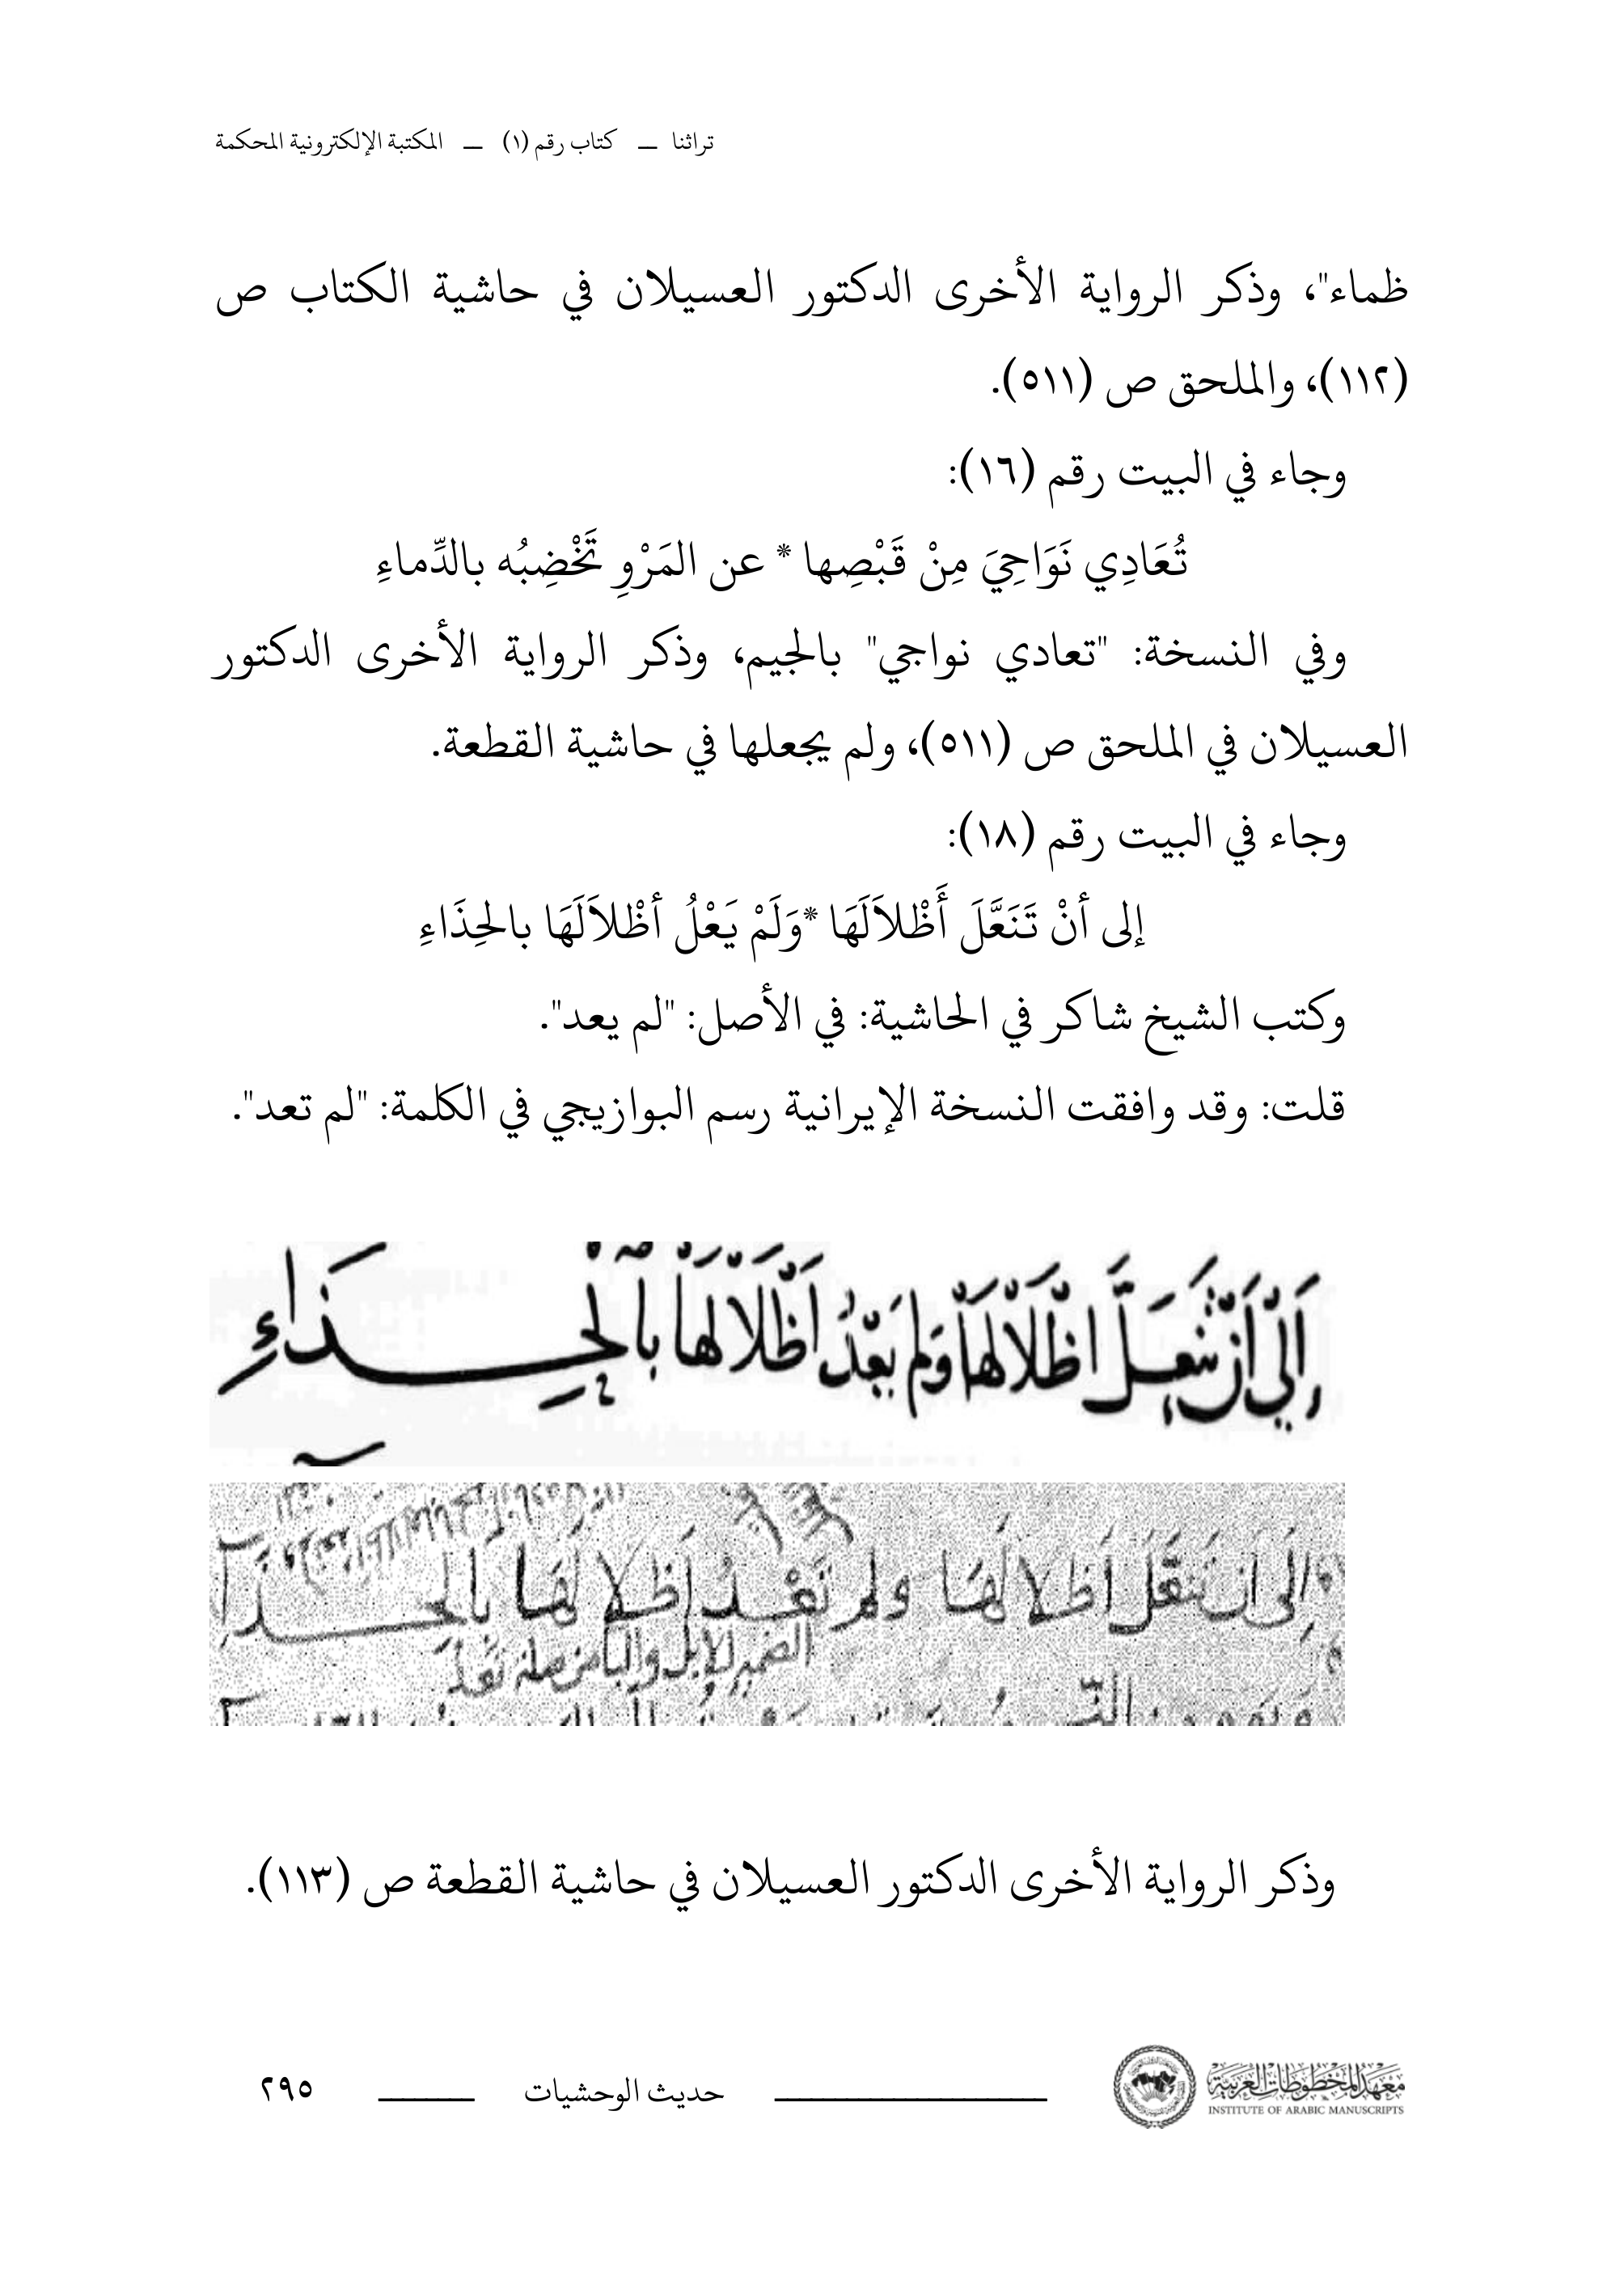 تراثنا ـــ كتاب رقم (١) ـــ المكتبة الإلكترونية المحكمة
ظماء"، وذكر الرواية الأخرى الدكتور العسيلان في حاشية الكتاب ص
(١١٢)، والملحق ص (٥١١).
وجاء في البيت رقم (١٦):
تُعَادِي نَوَاحِيَ مِنْ قَبْصِها * عن المَرْوِ تَخْضِبُه بالدِّماءِ
وفي النسخة: "تعادي نواجي" بالجيم، وذكر الرواية الأخرى الدكتور
العسيلان في الملحق ص (٥١١)، ولم يجعلها في حاشية القطعة.
وجاء في البيت رقم (١٨):
إلى أنْ تَنَعَّلَ أَظْلاَلَهَا *وَلَمْ يَعْلُ أظْلاَلَهَا بالحِذَاءِ
وكتب الشيخ شاكر في الحاشية: في الأصل: "لم يعد".
قلت: وقد وافقت النسخة الإيرانية رسم البوازيجي في الكلمة: "لم تعد".
إلى أن اظلالها ولم اظلالها بالحذاءِ
إلى ان اظلالها ولم تعد اظلالها بالحذا
الضمير للإبل والبا من صلة تعد
وذكر الرواية الأخرى الدكتور العسيلان في حاشية القطعة ص (١١٣).
معهد المخطوطات العربية
INSTITUTE OF ARABIC MANUSCRIPTS
حديث الوحشيات
٢٩٥